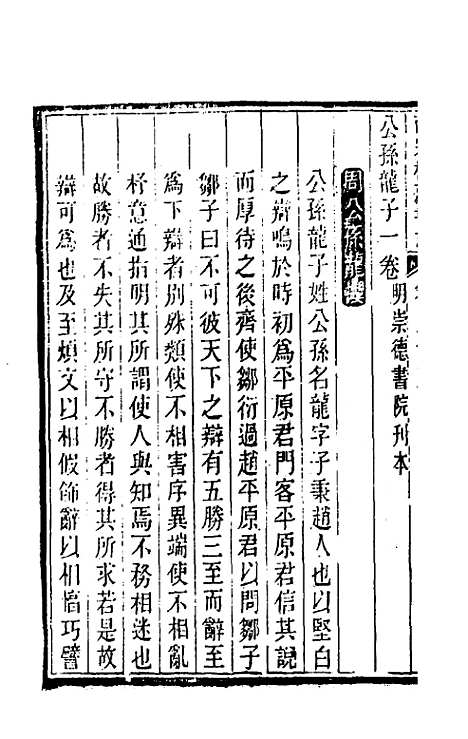 公孫龍子一卷 明崇德書院刊本
周公孫龍撰
公孫龍子姓公孫名龍字子秉趙人也以堅白
之辯鳴於時初爲平原君門客平原君信其說
而厚待之後齊使鄒衍過趙平原君以問鄒子
鄒子曰不可彼天下之辯有五勝三至而辭至
爲下辯者別殊類使不相害序異端使不相亂
杼意通指明其所謂使人與知焉不務相迷也
故勝者不失其所守不勝者得其所求若是故
辯可爲也及至煩文以相假飾辭以相惇巧譬